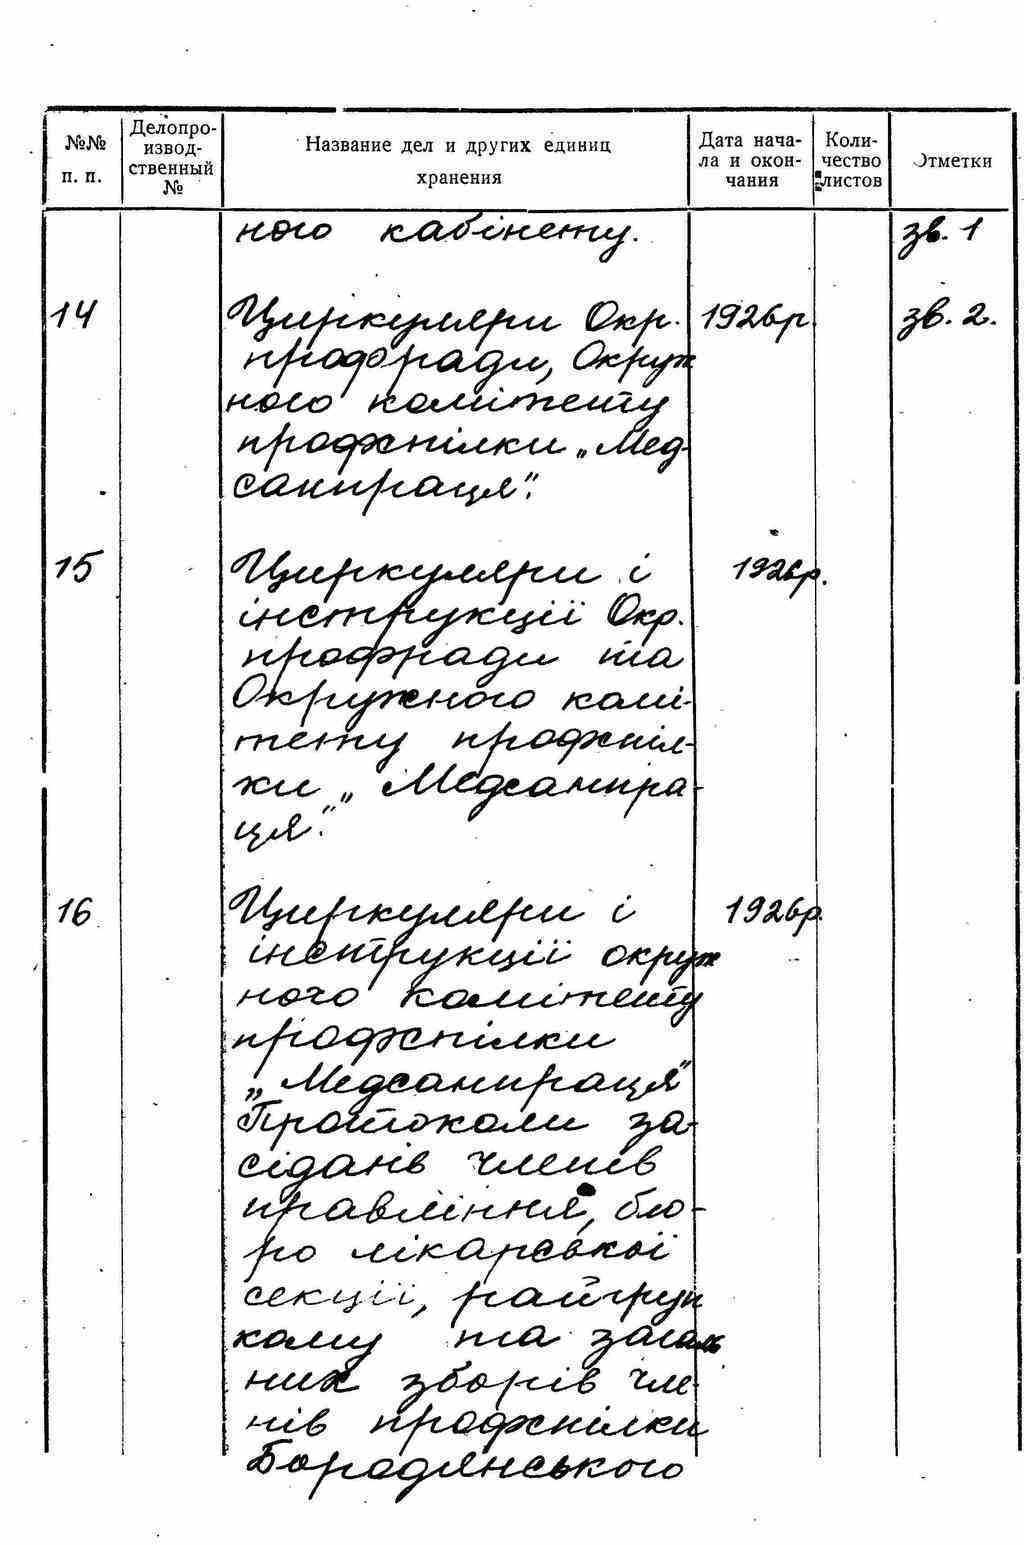 №№ п. п.
Делопро-
извод-
ственный
№
Название дел и других единиц
хранения
Дата нача-
ла и окон-
чания
Коли-
чество
листов
Отметки
ного кабінету. зв. 1
14 Циркуляри Окр. 1926р. зв. 2.
профради, Окруж
ного комітету
профспілки „Мед-
санпраця".
15 Циркуляри і 1926р.
інструкції Окр.
профради та
Окружного комі-
тету профспіл-
ки „Медсанпра-
ця".
16 Циркуляри і 1926р.
інструкції окруж
ного комітету
профспілки
„Медсанпраця"
Протоколи за-
сідань членів
правління, бю-
ро лікарської
секції, райгруп
кому та загаль
них зборів чле-
нів профспілки
Бородянського